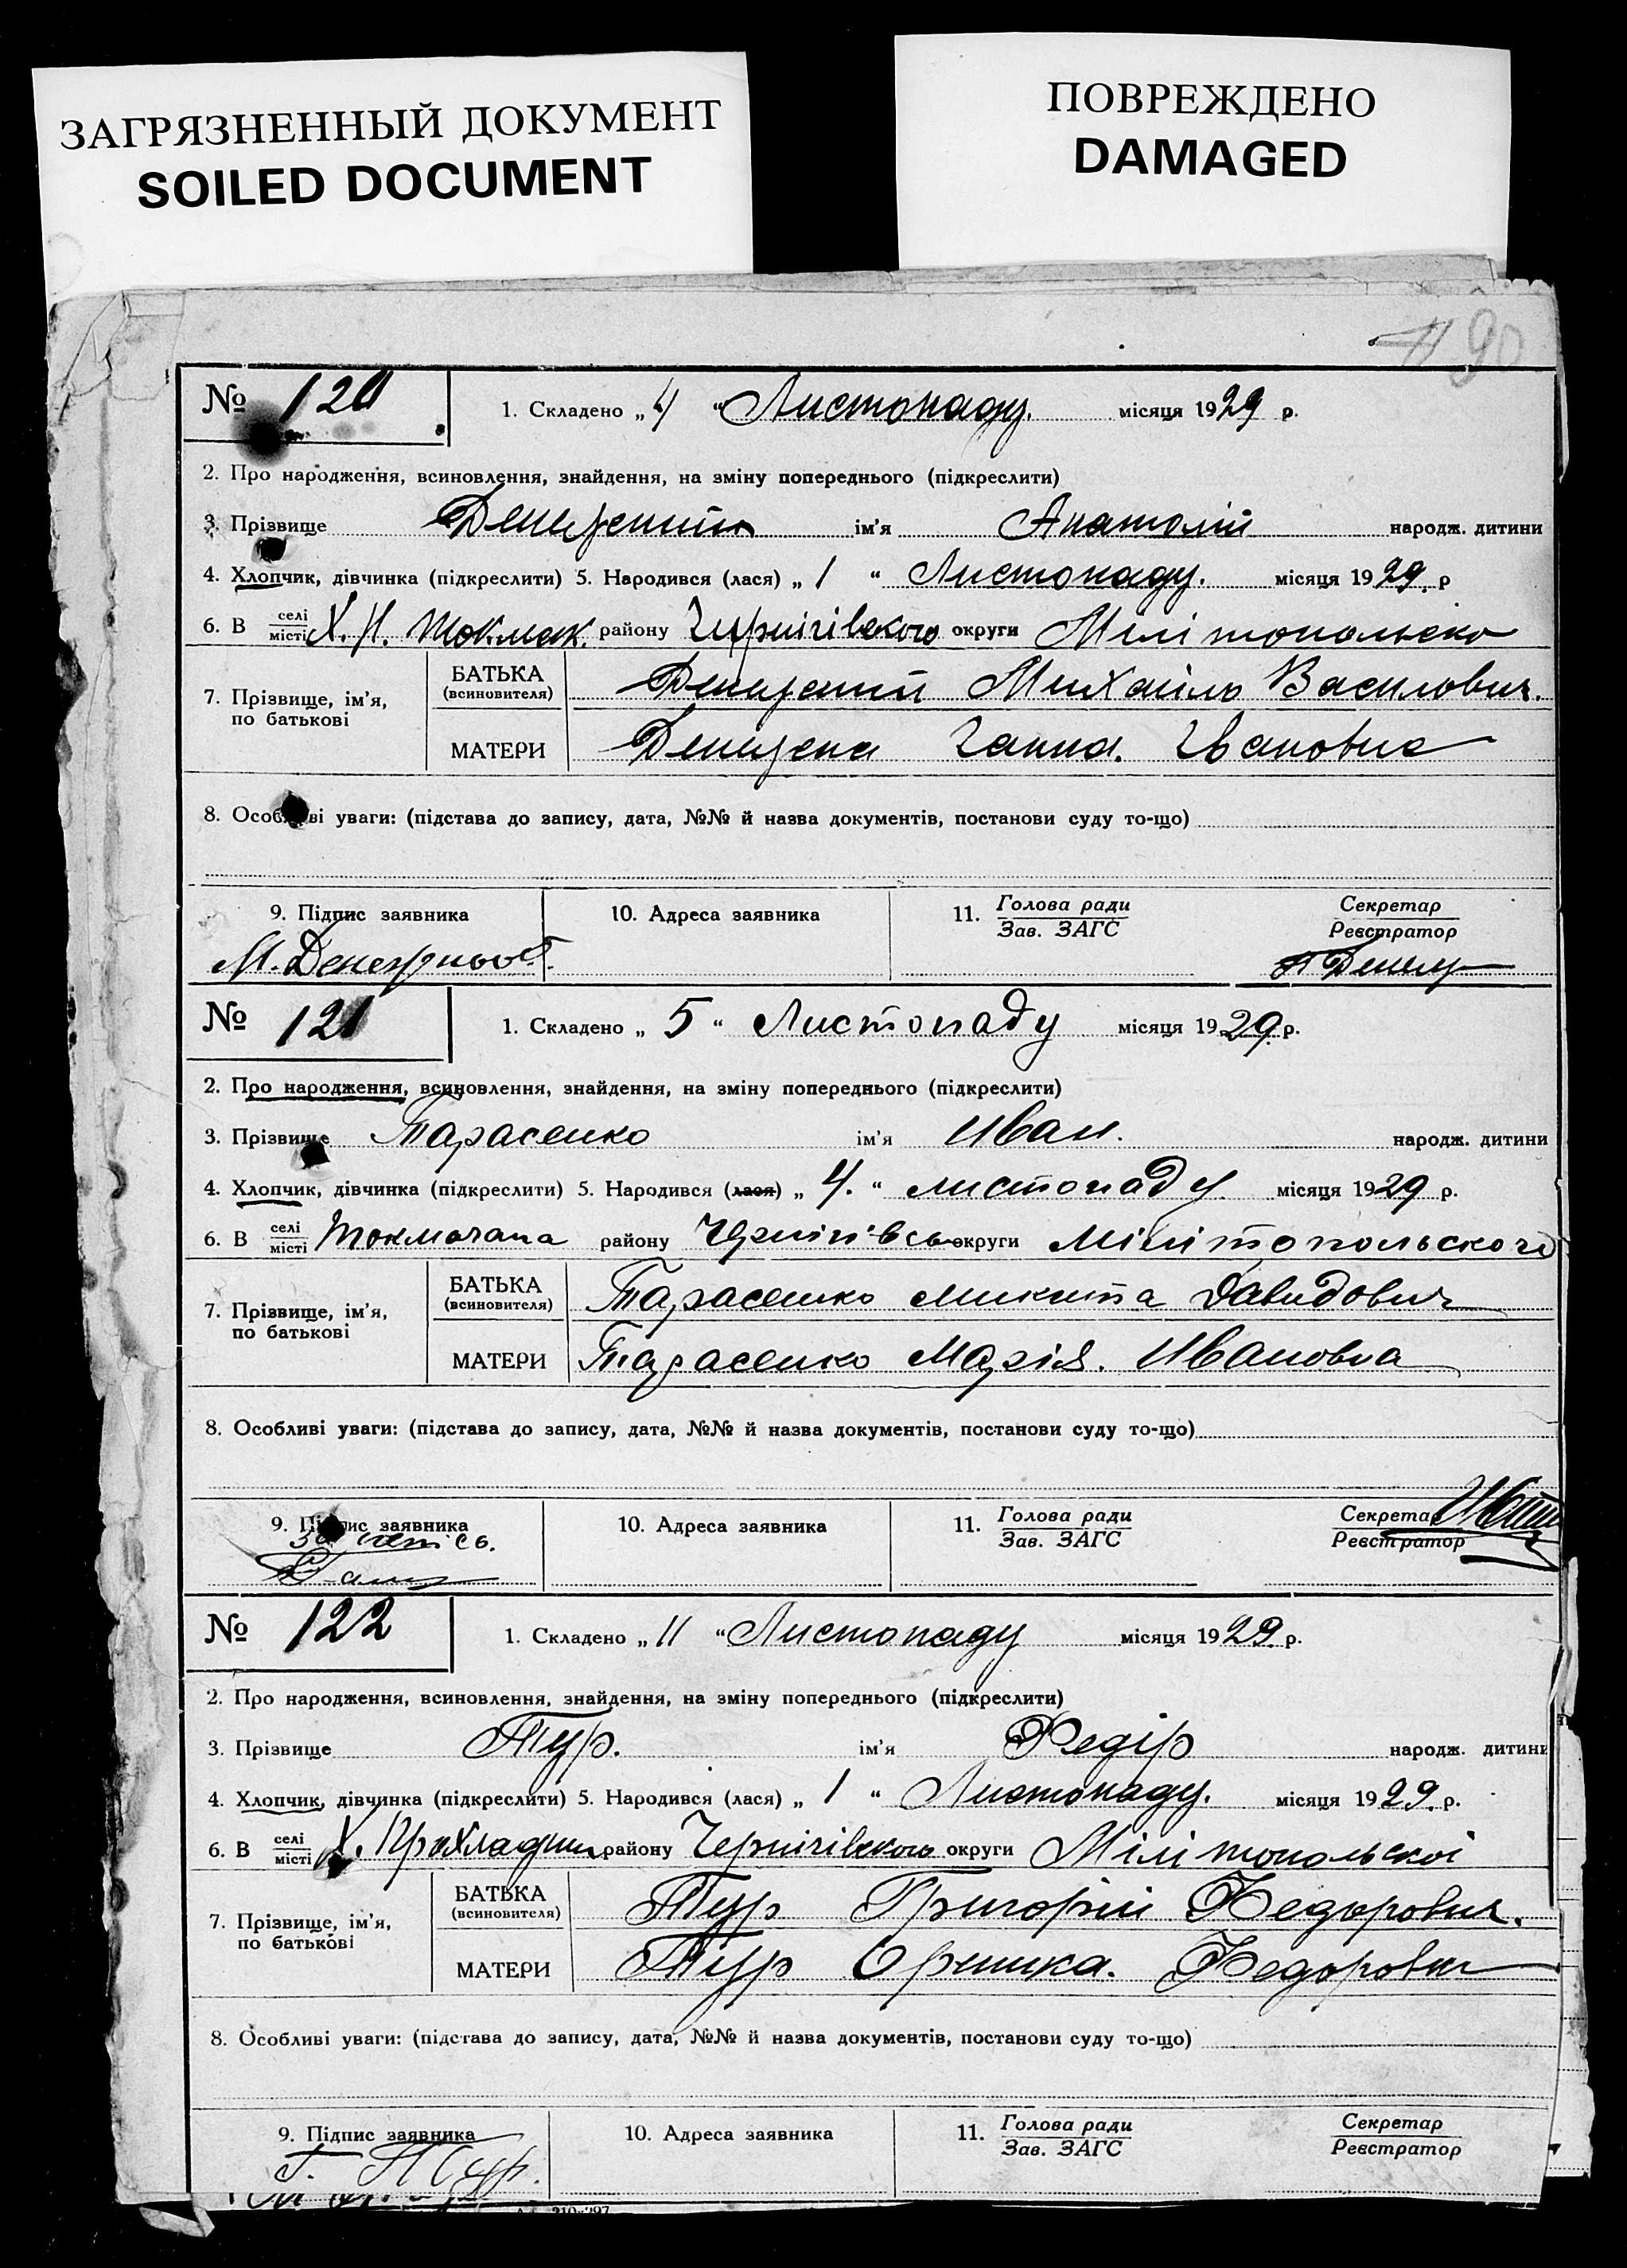 ЗАГРЯЗНЕННЫЙ ДОКУМЕНТ
SOILED DOCUMENT
ПОВРЕЖДЕНО
DAMAGED
90
№ 120 1. Складено „ 4 “ Листопаду. місяця 1929 р.
2. Про народження, всиновлення, знайдення, на зміну попереднього (підкреслити)
3. Прізвище ім'я Анатолій народж. дитини
4. Хлопчик, дівчинка (підкреслити) 5. Народився (лася) „ 1 “ Листопаду. місяця 1929. р
6. В селі/місті Х. Н. Токмак. району Чернігівського округи Мілітопольско
7. Прізвище, ім'я, по батькові
БАТЬКА (всиновителя) Михаіло Василович.
МАТЕРИ Ганна. Івановна
8. Особливі уваги: (підстава до запису, дата, №№ й назва документів, постанови суду то-що)
9. Підпис заявника 10. Адреса заявника 11. Голова ради/Зав. ЗАГС Секретар/Реєстратор
№ 121 1. Складено „ 5 “ Листопаду місяця 1929. р.
2. Про народження, всиновлення, знайдення, на зміну попереднього (підкреслити)
3. Прізвище Тарасенко ім'я Иван. народж. дитини
4. Хлопчик, дівчинка (підкреслити) 5. Народився (лася) „ 4. “ листопаду місяця 1929 р.
6. В селі/місті району округи Мілітопольского
7. Прізвище, ім'я, по батькові
БАТЬКА (всиновителя) Тарасенко Микита Давидович
МАТЕРИ Тарасенко Марія. Ивановна
8. Особливі уваги: (підстава до запису, дата, №№ й назва документів, постанови суду то-що)
9. Підпис заявника 10. Адреса заявника 11. Голова ради/Зав. ЗАГС Секретар/Реєстратор
№ 122 1. Складено „ 11 “ Листопаду місяця 1929. р.
2. Про народження, всиновлення, знайдення, на зміну попереднього (підкреслити)
3. Прізвище Тур. ім'я Федір народж. дитини
4. Хлопчик, дівчинка (підкреслити) 5. Народився (лася) „ 1 “ Листопаду. місяця 1929. р.
6. В селі/місті Х. району Чернігівского округи Мілітопольскоі
7. Прізвище, ім'я, по батькові
БАТЬКА (всиновителя) Тур Григорій Федорович.
МАТЕРИ Тур Оришка. Федоровн
8. Особливі уваги: (підстава до запису, дата, №№ й назва документів, постанови суду то-що)
9. Підпис заявника 10. Адреса заявника 11. Голова ради/Зав. ЗАГС Секретар/Реєстратор
Г. Тур.